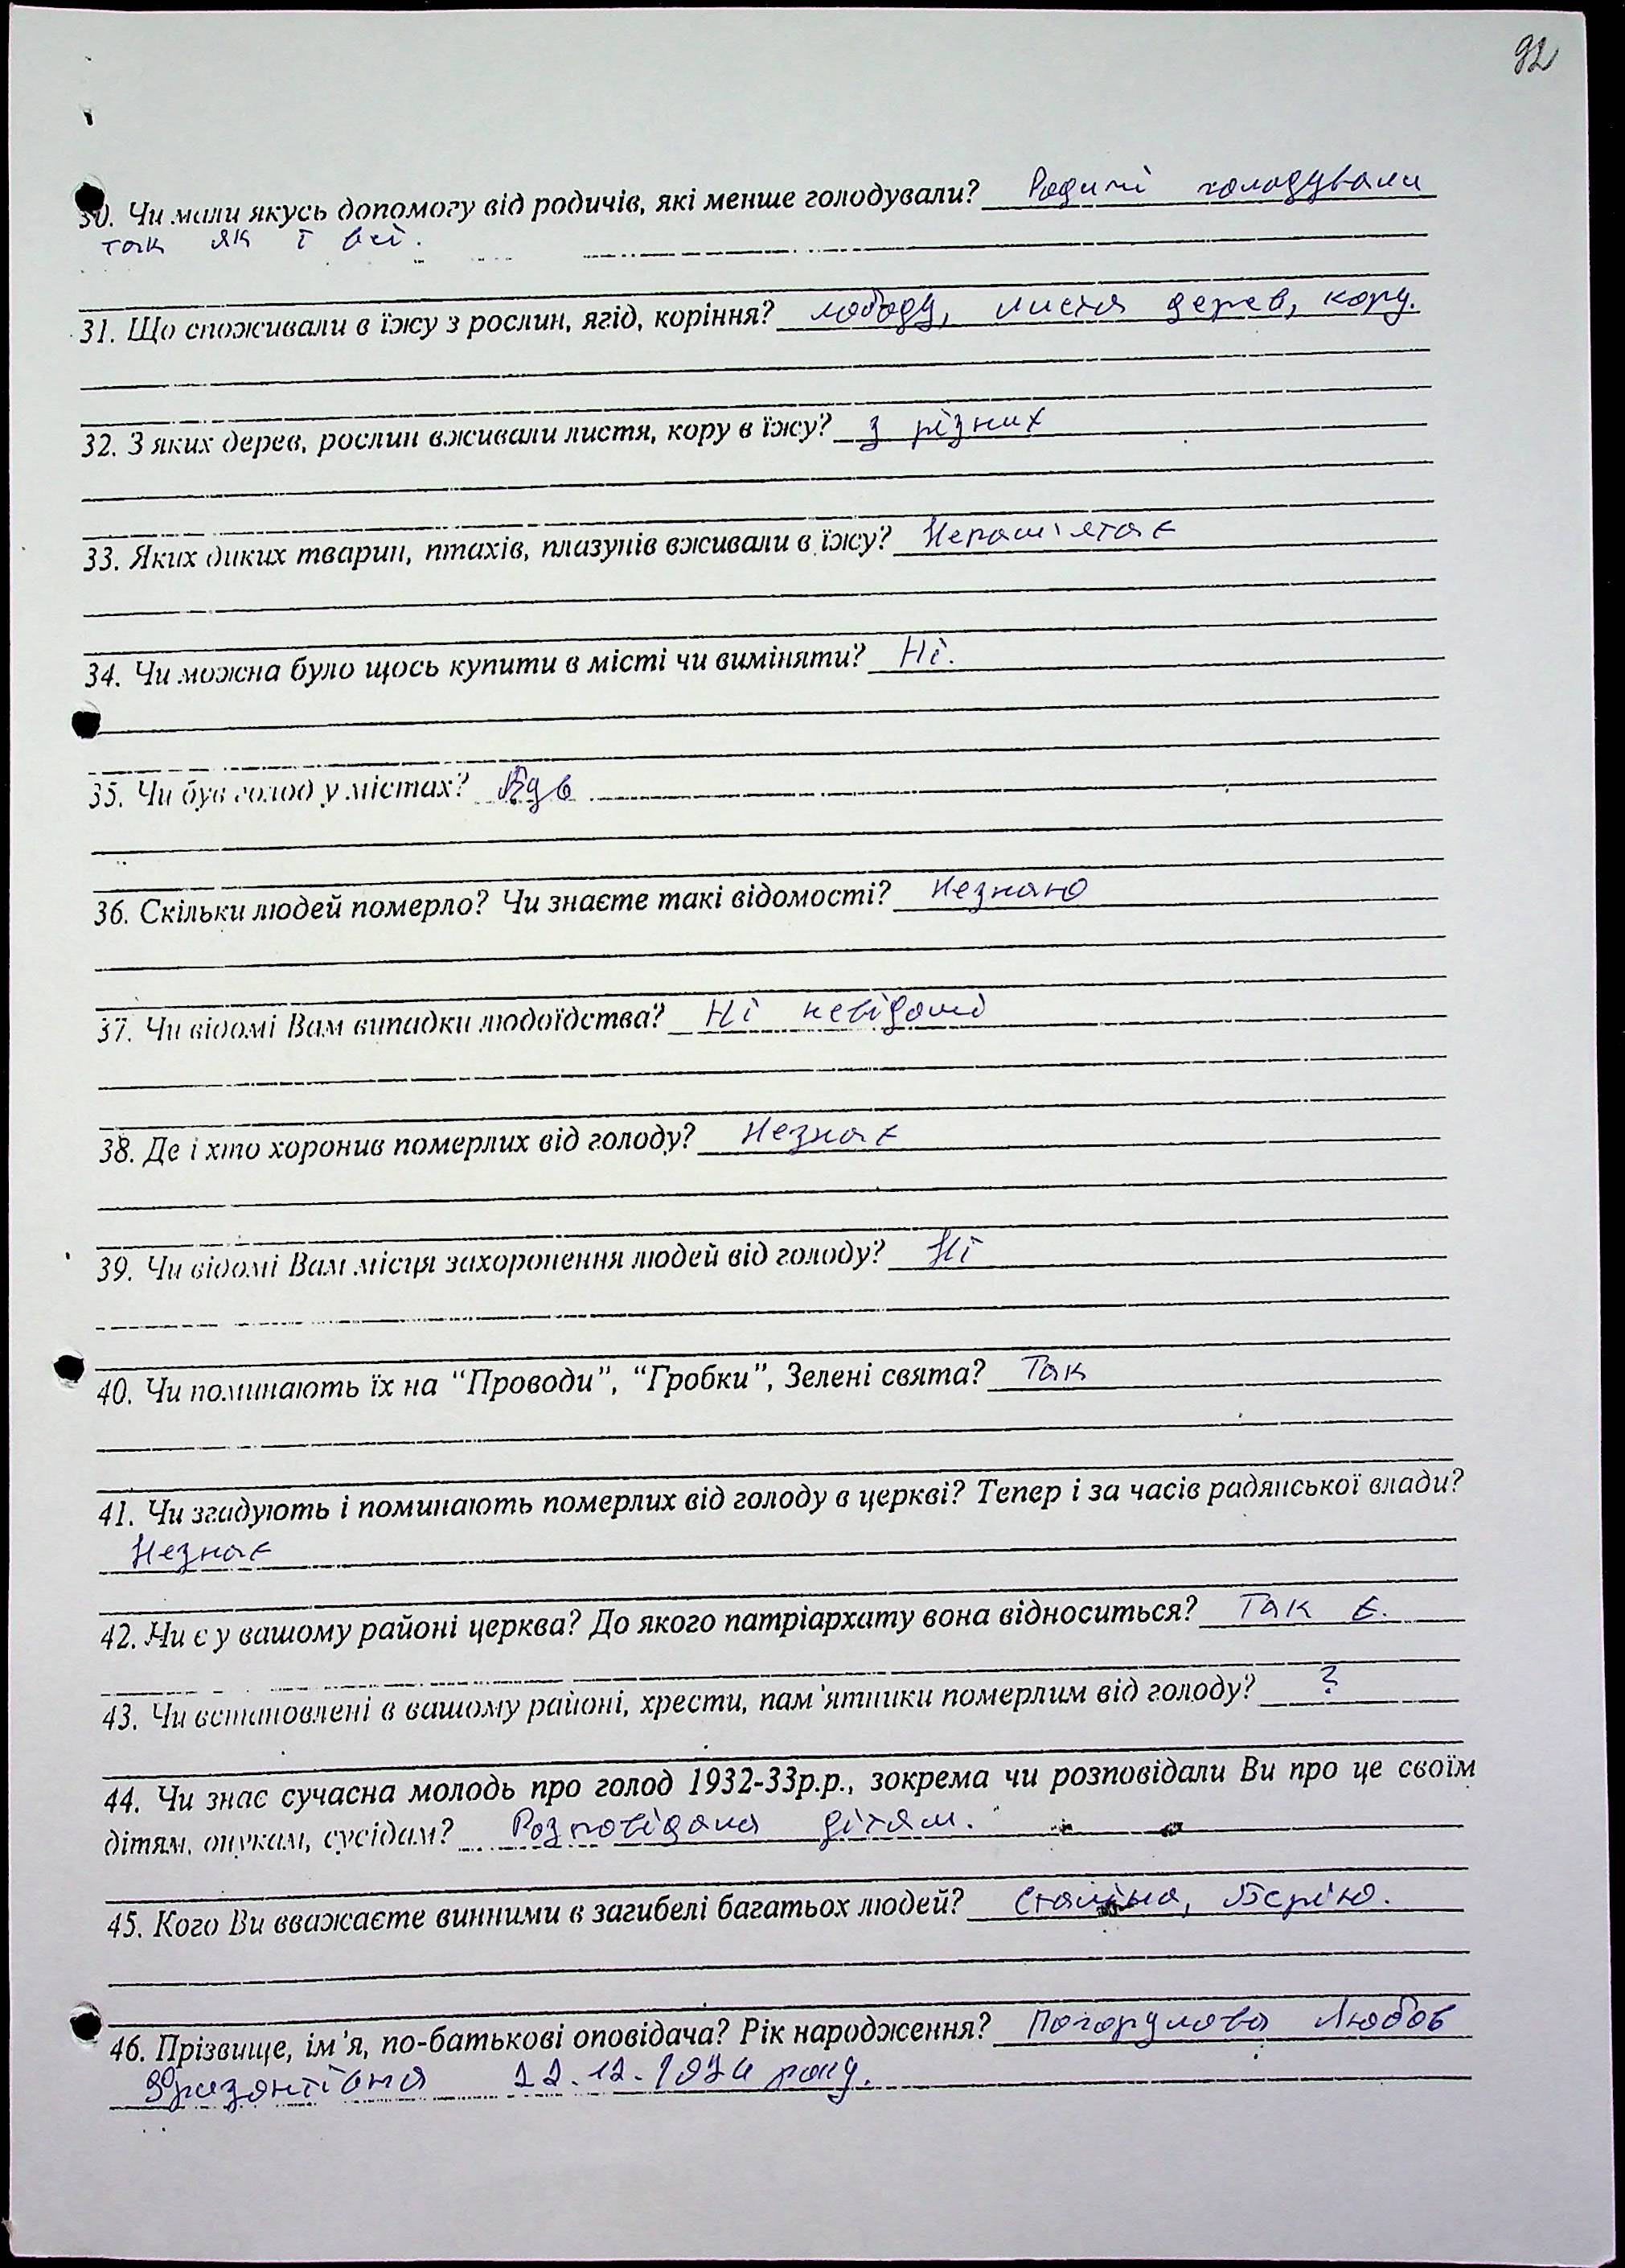 92
30. Чи мали якусь допомогу від родичів, які менше голодували? Родичі голодували
так як і всі.
31. Що споживали в їжу з рослин, ягід, коріння? лободу, листя дерев, кору.
32. З яких дерев, рослин вживали листя, кору в їжу? з різних
33. Яких диких тварин, птахів, плазунів вживали в їжу? Непам'ятає
34. Чи можна було щось купити в місті чи виміняти? Ні.
35. Чи був голод у містах? Був
36. Скільки людей померло? Чи знаєте такі відомості? незнаю
37. Чи відомі Вам випадки людоїдства? Ні невідомі
38. Де і хто хоронив померлих від голоду? Незнає
39. Чи відомі Вам місця захоронення людей від голоду? Ні
40. Чи поминають їх на "Проводи", "Гробки", Зелені свята? Так
41. Чи згадують і поминають померлих від голоду в церкві? Тепер і за часів радянської влади?
Незнає
42. Чи є у вашому районі церква? До якого патріархату вона відноситься? Так є.
43. Чи встановлені в вашому районі, хрести, пам'ятники померлим від голоду? ?
44. Чи знає сучасна молодь про голод 1932-33р.р., зокрема чи розповідали Ви про це своїм
дітям, онукам, сусідам? Розповідала дітям.
45. Кого Ви вважаєте винними в загибелі багатьох людей? Сталіна, Берію.
46. Прізвище, ім'я, по-батькові оповідача? Рік народження? Любов
12. року.